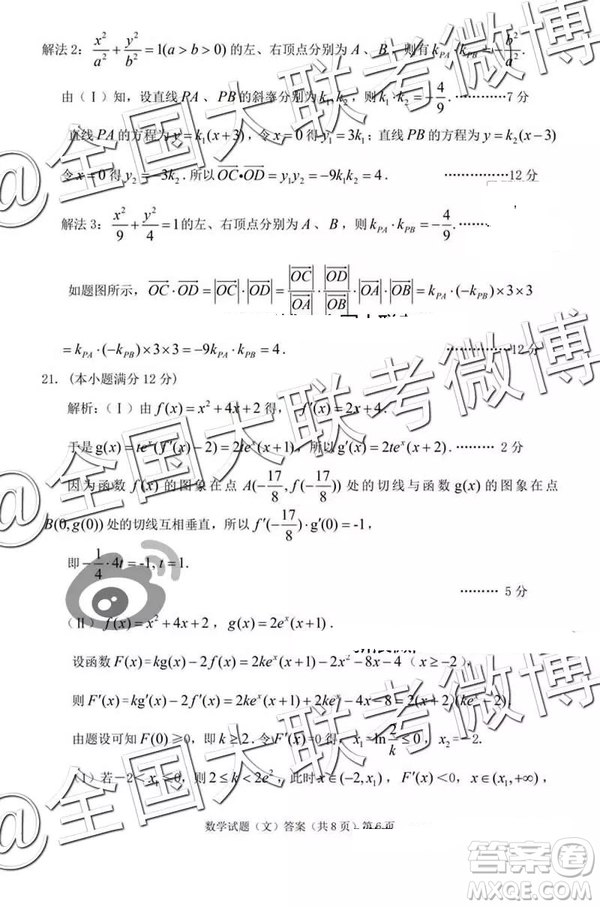 解法2：x²/a² + y²/b² = 1(a > b > 0) 的左、右顶点分别为 A、B，则有 k_PA · k_PB = -b²/a².
由（Ⅰ）知，设直线 PA、PB 的斜率分别为 k₁,k₂，则 k₁ · k₂ = -4/9. ………7分
直线 PA 的方程为 y = k₁(x+3)，令 x = 0 得 y₁ = 3k₁；直线 PB 的方程为 y = k₂(x-3)
令 x = 0 得 y₂ = -3k₂. 所以 OC→•OD→ = y₁y₂ = -9k₁k₂ = 4. ……………12分
解法3：x²/9 + y²/4 = 1 的左、右顶点分别为 A、B，则 k_PA · k_PB = -4/9.
如题图所示，OC→ · OD→ = |OC→| |OD→| = |OC→|/|OA→| · |OD→|/|OB→| · |OA→| · |OB→| = k_PA · (-k_PB) × 3 × 3
= k_PA · (-k_PB) × 3 × 3 = -9k_PA · k_PB = 4. ……………12分
21.（本小题满分12分）
解析：（Ⅰ）由 f(x) = x² + 4x + 2 得， f′(x) = 2x + 4.
于是 g(x) = teˣ(f′(x) - 2) = 2teˣ(x+1)，所以 g′(x) = 2teˣ(x+2). ……… 2分
因为函数 f(x) 的图象在点 A(-17/8, f(-17/8)) 处的切线与函数 g(x) 的图象在点
B(0, g(0)) 处的切线互相垂直，所以 f′(-17/8) · g′(0) = -1，
即 -1/4 · 4t = -1, t = 1.
……… 5分
（Ⅱ）f(x) = x² + 4x + 2， g(x) = 2eˣ(x+1).
设函数 F(x) = kg(x) - 2f(x) = 2keˣ(x+1) - 2x² - 8x - 4（x ≥ -2），
则 F′(x) = kg′(x) - 2f′(x) = 2keˣ(x+1) + 2keˣ - 4x - 8 = 2(x+2)(keˣ - 2).
由题设可知 F(0) ≥ 0，即 k ≥ 2. 令 F′(x) = 0 得， x₁ = ln 2/k ≤ 0， x₂ = -2.
（1）若 -2 < x₁ ≤ 0，则 2 ≤ k < 2e²，此时 x ∈ (-2, x₁)， F′(x) < 0， x ∈ (x₁, +∞)，
数学试题（文）答案（共8页） 第6页
@全国大联考微博
@全国大联考微博
@全国大联考微博
答案圈
MXQE.COM